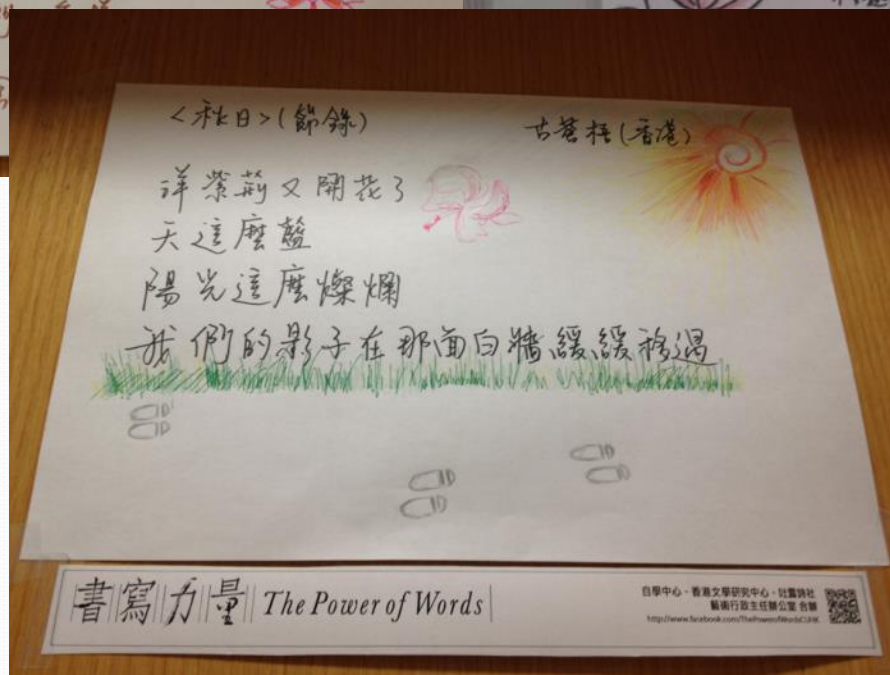 <秋日>(節錄)
古蒼梧(香港)
洋紫荊又開花了
天這麼藍
陽光這麼燦爛
我們的影子在那面白牆緩緩移過
書寫力量 The Power of Words
自學中心・香港文學研究中心・吐露詩社
藝術行政主任辦公室 合辦
http://www.facebook.com/ThePowerofWordsCUHK